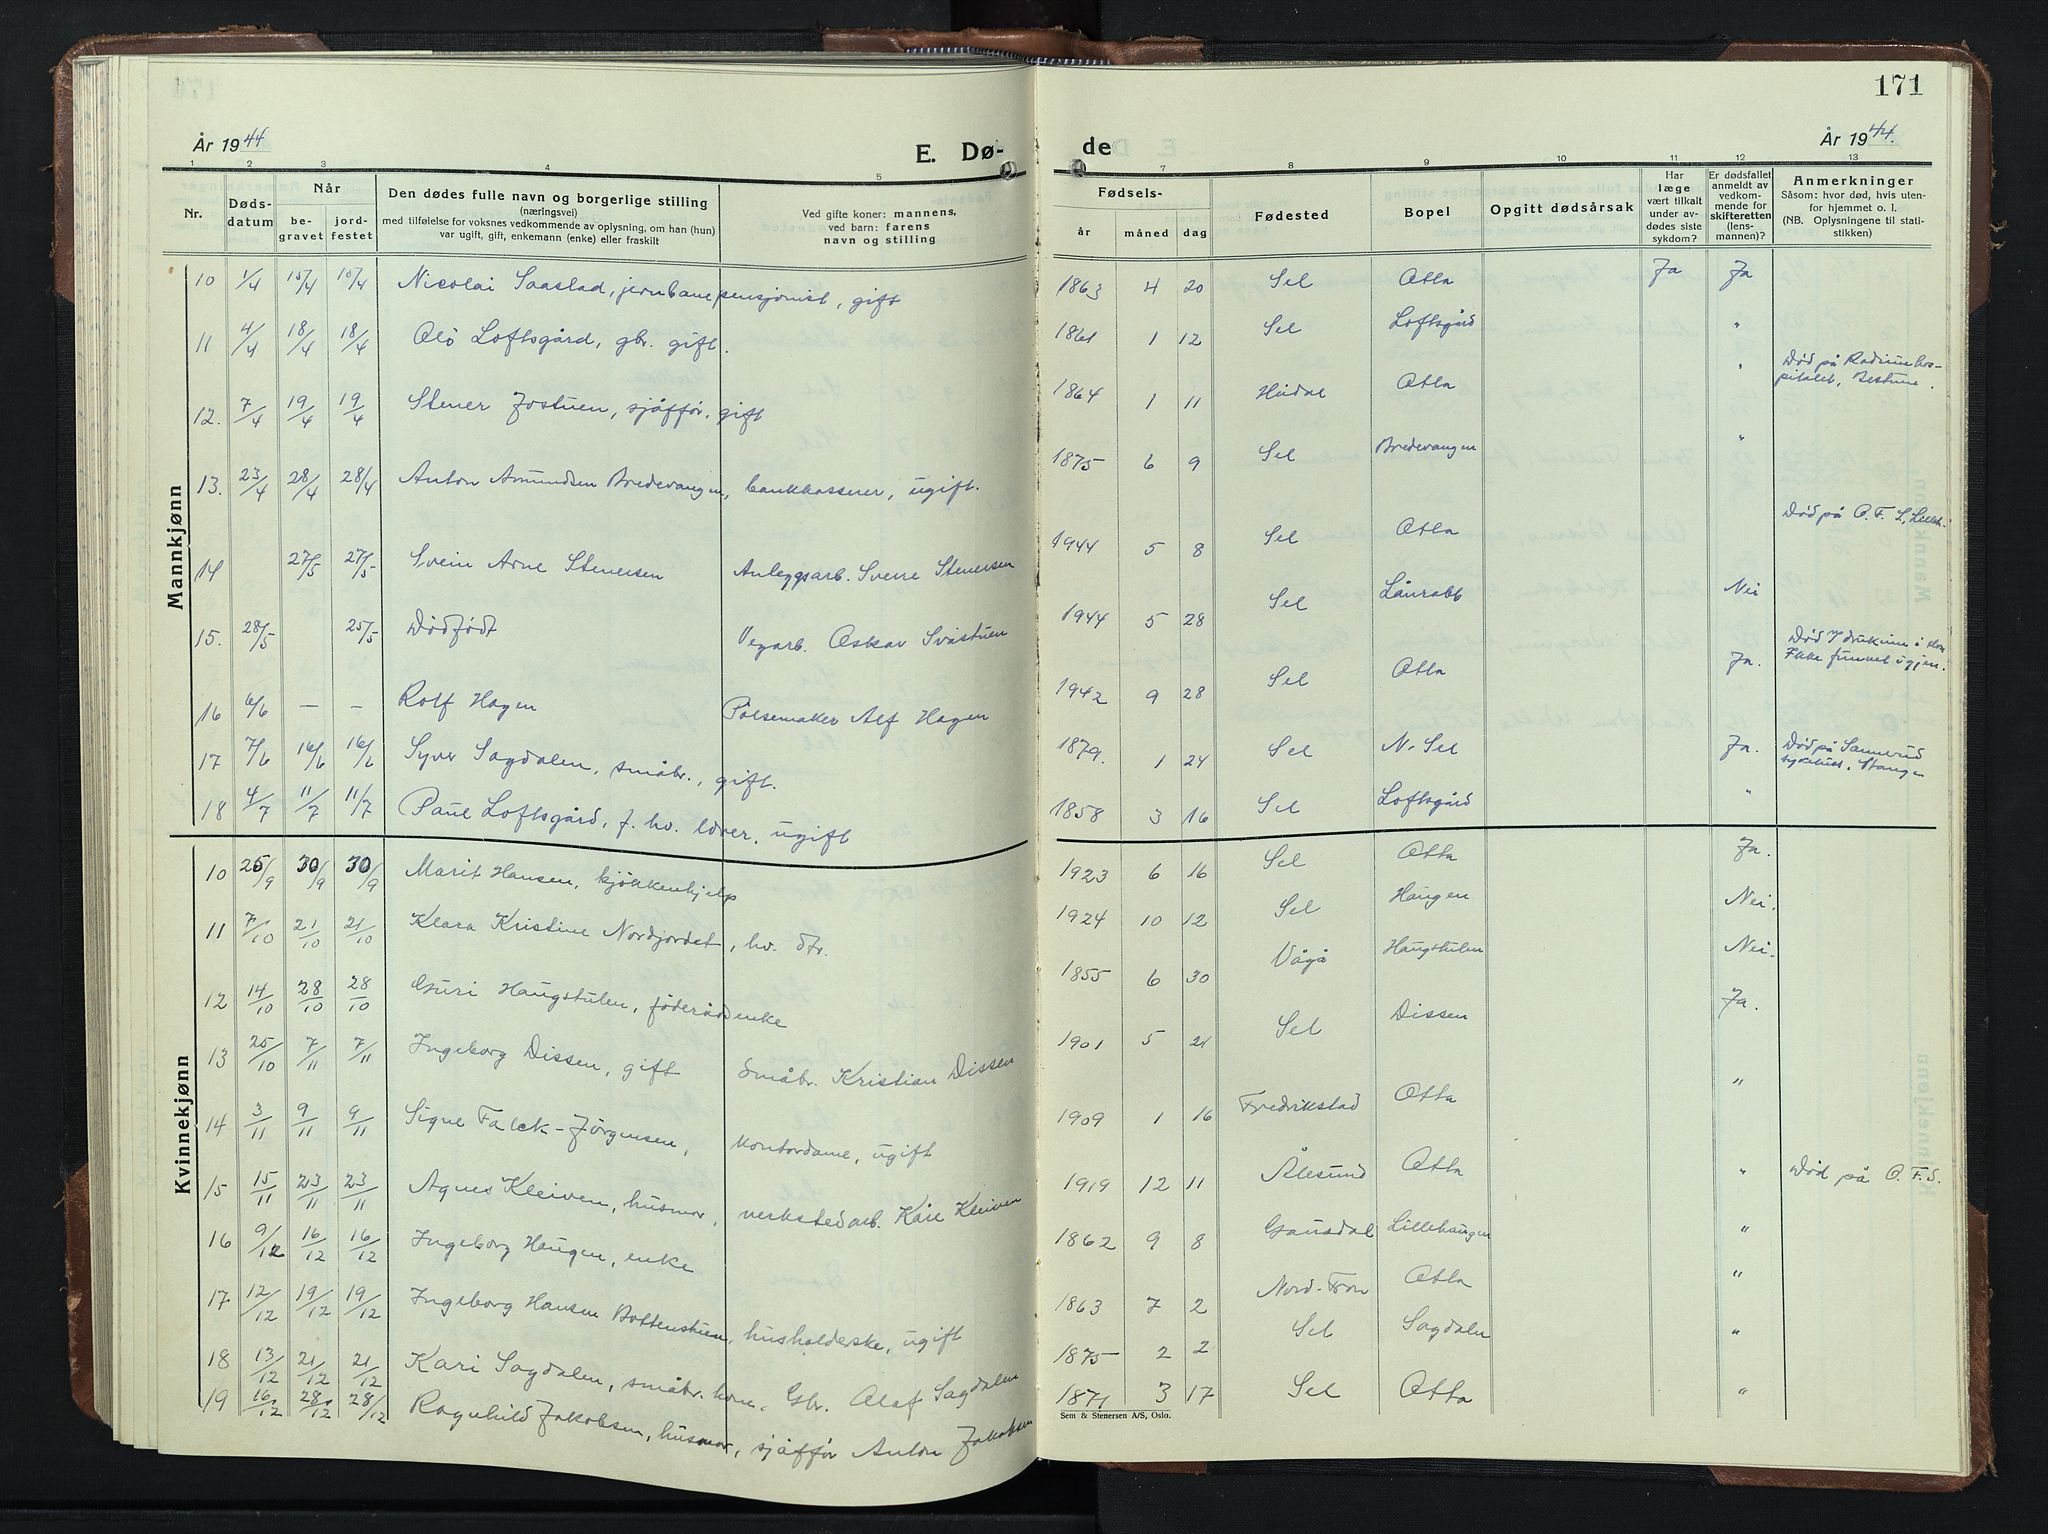 171
År 1944
E. Dø-
de
År 1944.
1 2 3 4 5 7 8 9 10 11 12 13
Nr.
Dødsdatum
Når
begravet
jordfestet
Den dødes fulle navn og borgerlige stilling
(næringsvei)
med tilføielse for voksnes vedkommende av oplysning, om han (hun)
var ugift, gift, enkemann (enke) eller fraskilt
Ved gifte koner: mannens,
ved barn: farens
navn og stilling
Fødsels-
år måned dag
Fødested
Bopel
Opgitt dødsårsak
Har
læge
vært tilkalt
under av-
dødes siste
sykdom?
Er dødsfallet
anmeldt av
vedkom-
mende for
skifteretten
(lens-
mannen)?
Anmerkninger
Såsom: hvor død, hvis uten-
for hjemmet o. l.
(NB. Oplysningene til stati-
stikken)
Mannkjønn
10 1/4 15/4 15/4 Nicolai Saastad, jernbanepensjonist, gift 1863 4 20 Sel Otta Ja Ja
11 4/4 18/4 18/4 Olò Loftsgård, gbr. gift. 1861 1 12 Sel Loftsgård "
12. 7/4 19/4 19/4 Stener Jostuen, sjåffør, gift 1864 1 11 Heidal Otta " Død på Radiumhos-
pitalet, Bestum.
13. 23/4 28/4 28/4 Anton Amundsen Bredevangen, bankkasserer, ugift. 1875 6 9 Sel Bredevangen "
14 27/5 27/5 Svein Arne Stenersen Anleggsarb. Sverre Stenersen 1944 5 8 Sel Otta Død på O. F. S., Lilleh.
15. 28/5 25/5 Dødfødt Vegarb. Oskar Svåstuen 1944 5 28 Sel Låurabb Nei
16 6/6 — — Rolf Hagen Pølsemaker Alf Hagen 1942 9 28 Sel Otta Ja. Død
Ikke funnet igjen.
17 7/6 16/6 16/6 Syver Sagdalen, småbr., gift. 1879. 1 24 Sel N. Sel Ja. Død på Sannerud
sykehus, Stange
18 4/7 11/7 11/7 Paul Loftsgård, f. hv. lærer, ugift 1858 3 16 Sel Loftsgård "
Kvinnekjønn
10 25/9 30/9 30/9 Marit Hansen, kjøkkenhjelp 1923 6 16 Sel Otta Ja.
11 7/10 21/10 21/10 Klara Kristine Nordjordet, hv. dtr. 1924 10 12 Sel Haugen Nei.
12 14/10 28/10 28/10 Guri Haugstulen, føderådsenke 1855 6 30 Vågå Haugstulen Nei.
13 25/10 7/11 7/11 Ingeborg Dissen, gift Småbr. Kristian Dissen 1901 5 21 Sel Dissen Ja.
14 3/11 9/11 9/11 Signe Falck-Jørgensen, kontordame, ugift 1909 1 16 Fredrikstad Otta "
15 15/11 23/11 23/11 Agnes Kleiven, husmor, verkstedarb. Kåre Kleiven 1919 12 11 Ålesund Otta " Død på O. F. S.
16 9/12 16/12 16/12 Ingeborg Haugen, enke 1862 9 8 Gausdal Lillehaugen "
17 12/12 19/12 19/12 Ingeborg Hansen Bottenstuen, husholderske, ugift 1863 7 2 Nord-Fron Otta "
18 13/12 21/12 21/12 Kari Sagdalen, småbr. kone, Gbr. Olaf Sagdalen 1875 2 2 Sel Sagdalen "
19 16/12 28/12 28/12 Ragnhild Jakobsen, husmor, sjåffør Anton Jakobsen 1871 3 17 Sel Otta "
Sem & Stenersen A/S, Oslo.